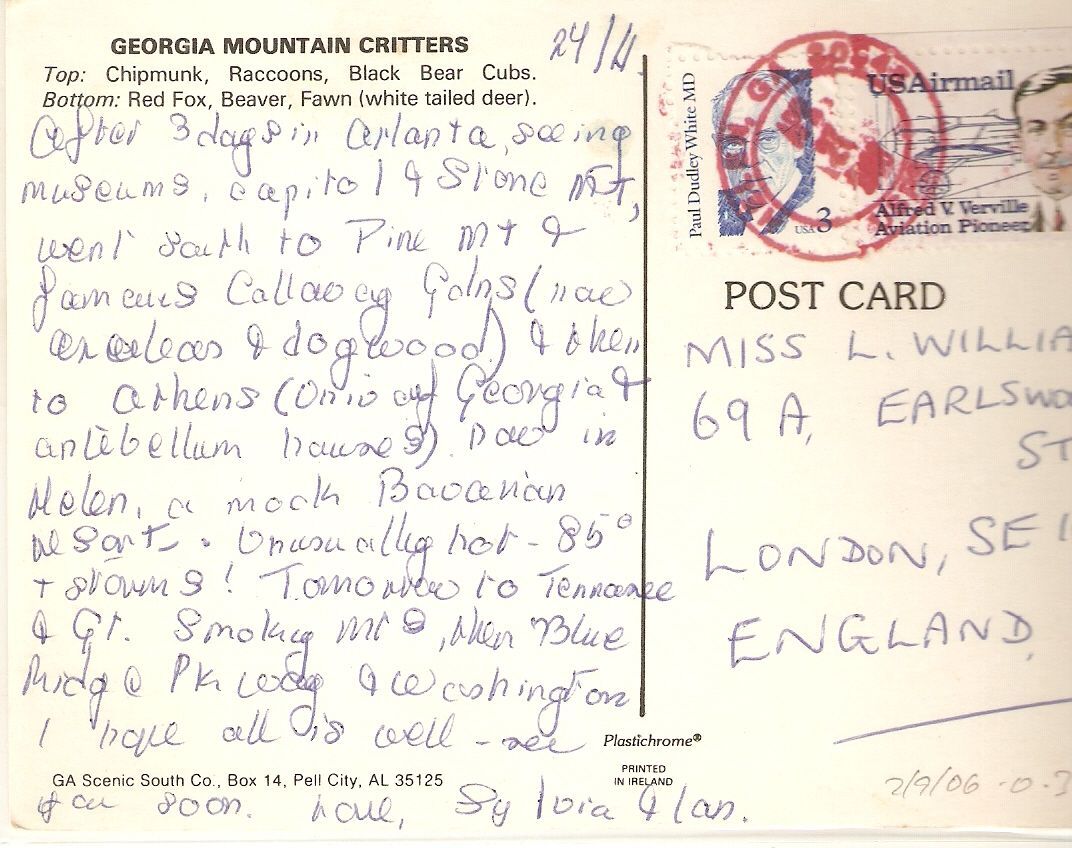 GEORGIA MOUNTAIN CRITTERS
Top: Chipmunk, Raccoons, Black Bear Cubs.
Bottom: Red Fox, Beaver, Fawn (white tailed deer).
24/4.
After 3 days in Atlanta, seeing
museums, capitol & Stone Mt,
went south to Pine Mt &
famous Callaway Gdns (now
azaleas & dogwood) & then
to Athens (Univ of Georgia &
antebellum houses). Now in
Helen, a mock Bavarian
resort. Unusually hot - 85°
+ storms! Tomorrow to Tennessee
& Gt. Smoky Mts, then Blue
Ridge Pkway & Washington
I hope all is well - see
you soon. Love, Sylvia & Ian.
GA Scenic South Co., Box 14, Pell City, AL 35125
Plastichrome®
PRINTED
IN IRELAND
Paul Dudley White MD
USA 3
USAirmail
Alfred V. Verville
Aviation Pioneer
POST CARD
MISS L. WILLIA
69 A, EARLSWO
ST
LONDON, SE 1
ENGLAND.
2/9/06 -0.3